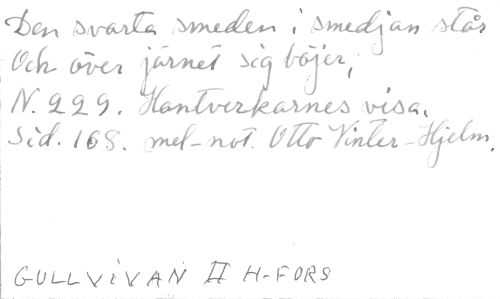 Den svarta smeden i smedjan står
Och över järnet sig böjer,
N. 229. Hantverkarnes visa.
Sid. 168. mel-not. Otto Vinter-Hjelm.
GULLVIVAN II H-FORS